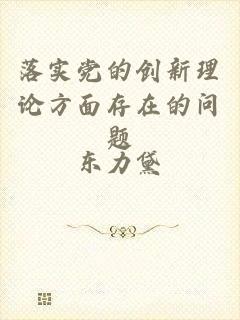 落实党的创新理
论方面存在的问
题
东力黛